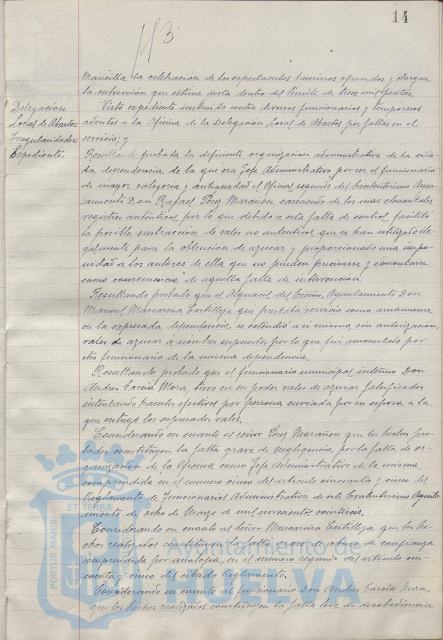 14
113
Mancilla la celebracion de los espectaculos taurinos ofrecidos y otorgar
la subvencion que estime justa dentro del limite de trece mil pesetas.
Delegacion
Local de Abastos:
Irregularidades:
Expediente.
Visto expediente instruido contra diversos funcionarios y temporeros
adscritos a la Oficina de la Delegacion Local de Abastos por faltas en el
servicio; y
Resultando probada la deficiente organizacion administrativa de la cita-
da dependencia de la que era Jefe Administrativo, por ser el funcionario
de mayor categoria y antiguedad el Oficial segundo del Excelentisimo Ayun-
tamiento Don Rafael Perez Marañon, careciendo de los mas elementales
registros autenticos, por lo que debido a esta falta de control, facilitó
la posible sustraccion de vales no autenticos que se han utilizado ile-
galmente para la obtencion de azucar y proporcionado una impu-
nidad a los autores de ella que no pueden precisarse y concretarse
como consecuencia de aquella falta de intervencion.
Resultando probado que el Alguacil del Excmo. Ayuntamiento Don
Manuel Mascareña Castilleja que prestaba servicio como amanuense
en la expresada dependencia se extendió a si mismo, sin autorizacion
vales de azucar a nombre supuesto, por lo que fue amonestado por
otro funcionario de la misma dependencia.
Resultando probado que el funcionario municipal interino Don
Andres Garcia Mora, tuvo en su poder vales de azucar falsificados
intentando hacerlos efectivos por persona enviada por su esposa a la
que entregó los expresados vales.
Considerando en cuanto al señor Perez Marañon que los hechos pro-
bados constituyen la falta grave de negligencia, por la falta de or-
ganizacion de la Oficina como Jefe Administrativo de la misma
comprendida en el numero cinco del articulo cincuenta y cinco del
Reglamento de Funcionarios Administrativos de este Excelentisimo Ayunta-
miento de ocho de Marzo de mil novecientos veintiseis.
Considerando en cuanto al Señor Mascareña Castilleja, que los he-
chos realizados constituyen la falta grave de abuso de confianza
comprendida por analogia, en el numero segundo del articulo cin-
cuenta y cinco del citado Reglamento.
Considerando en cuanto al funcionario Don Andres Garcia Mora,
que los hechos realizados constituyen la falta leve de desobediencia
PORTUS MARIS
ET TERRAE
Ayuntamiento de
HUELVA